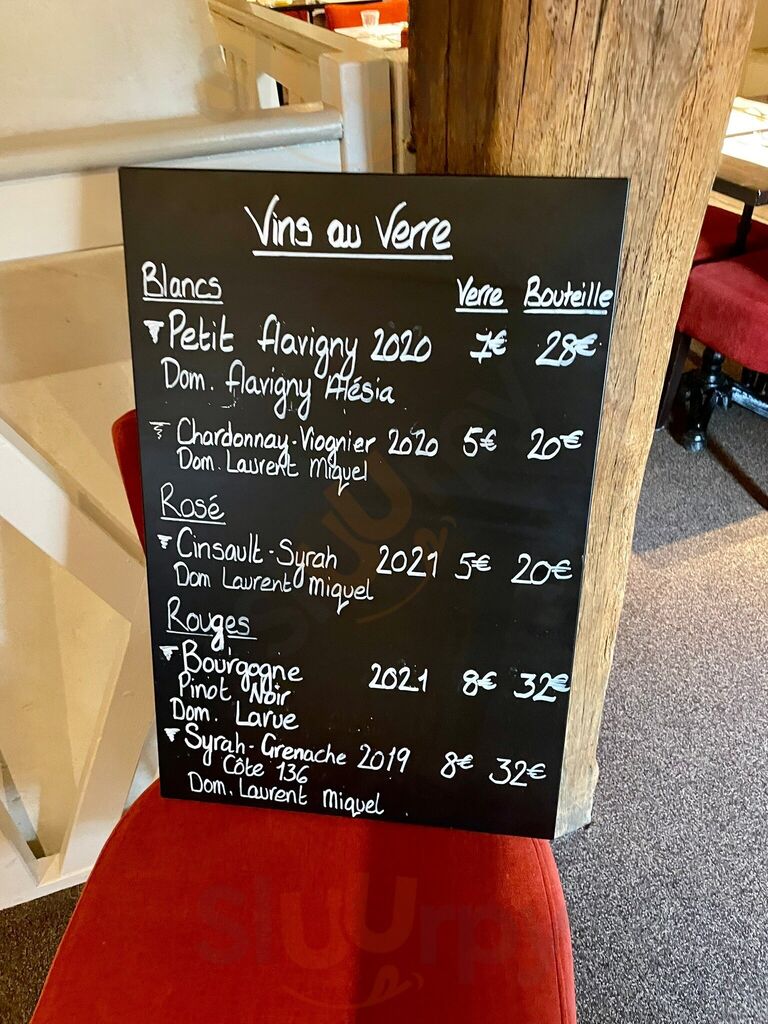 Vins au Verre
Blancs Verre Bouteille
Petit Flavigny 2020 7€ 28€
Dom. Flavigny Alésia
Chardonnay-Viognier 2020 5€ 20€
Dom. Laurent Miquel
Rosé
Cinsault-Syrah 2021 5€ 20€
Dom Laurent Miquel
Rouges
Bourgogne 2021 8€ 32€
Pinot Noir
Dom. Larue
Syrah-Grenache 2019 8€ 32€
Côte 136
Dom. Laurent Miquel
sluurpy
sluurpy